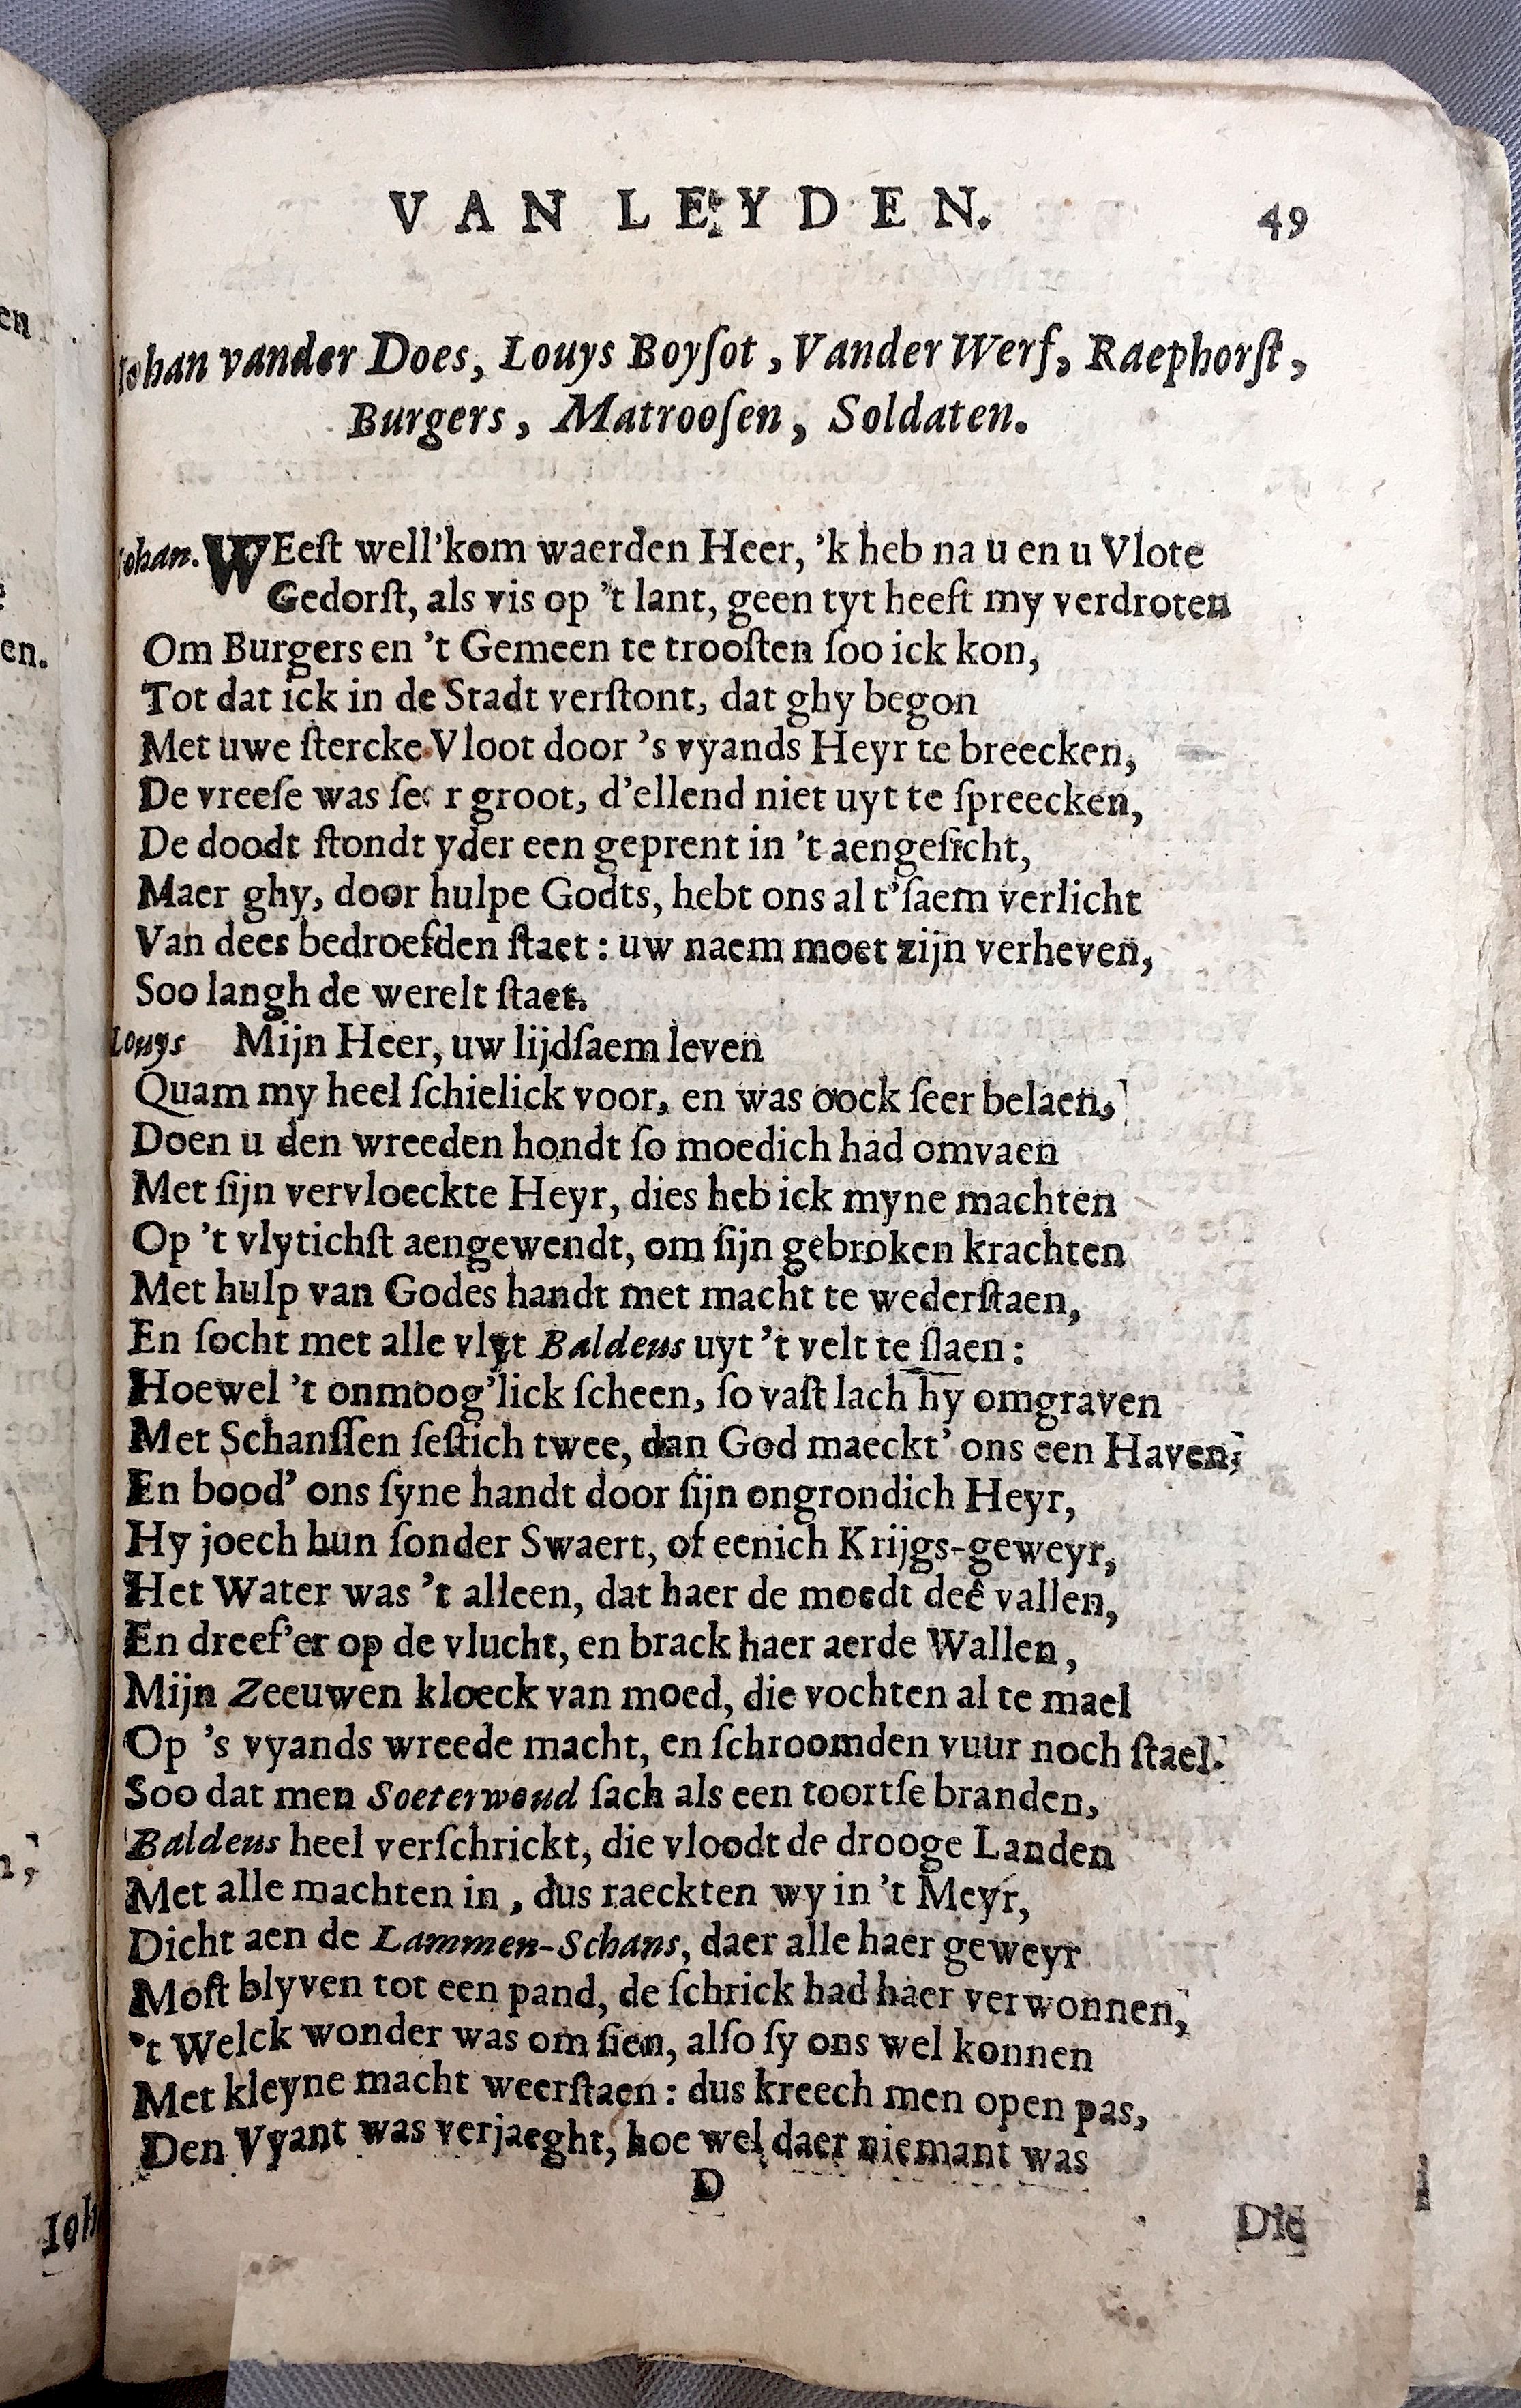 VAN LEYDEN. 49
Iohan vander Does, Louys Boyſot, Vander Werf, Raephorſt,
Burgers, Matrooſen, Soldaten.
Iohan. WEeſt well'kom waerden Heer, 'k heb na u en u Vlote
Gedorſt, als vis op 't lant, geen tyt heeft my verdroten
Om Burgers en 't Gemeen te trooſten ſoo ick kon,
Tot dat ick in de Stadt verſtont, dat ghy begon
Met uwe ſtercke Vloot door 's vyands Heyr te breecken,
De vreeſe was ſeer groot, d'ellend niet uyt te ſpreecken,
De doodt ſtondt yder een geprent in 't aengeſicht,
Maer ghy, door hulpe Godts, hebt ons al t'ſaem verlicht
Van dees bedroefden ſtaet: uw naem moet zijn verheven,
Soo langh de werelt ſtaet.
Louys Mijn Heer, uw lijdſaem leven
Quam my heel ſchielick voor, en was oock ſeer belaen,
Doen u den wreeden hondt ſo moedich had omvaen
Met ſijn vervloeckte Heyr, dies heb ick myne machten
Op 't vlytichſt aengewendt, om ſijn gebroken krachten
Met hulp van Godes handt met macht te wederſtaen,
En ſocht met alle vlyt Baldeus uyt 't velt te ſlaen:
Hoewel 't onmoog'lick ſcheen, ſo vaſt lach hy omgraven
Met Schanſſen ſeſtich twee, dan God maeckt' ons een Haven,
En bood' ons ſyne handt door ſijn ongrondich Heyr,
Hy joech hun ſonder Swaert, of eenich Krijgs-geweyr,
Het Water was 't alleen, dat haer de moedt deê vallen,
En dreef'er op de vlucht, en brack haer aerde Wallen,
Mijn Zeeuwen kloeck van moed, die vochten al te mael
Op 's vyands wreede macht, en ſchroomden vuur noch ſtael.
Soo dat men Soeterwoud ſach als een toortſe branden,
Baldeus heel verſchrickt, die vloodt de drooge Landen
Met alle machten in, dus raeckten wy in 't Meyr,
Dicht aen de Lammen-Schans, daer alle haer geweyr
Moſt blyven tot een pand, de ſchrick had haer verwonnen,
't Welck wonder was om ſien, alſo ſy ons wel konnen
Met kleyne macht weerſtaen: dus kreech men open pas,
Den Vyant was verjaeght, hoe wel daer niemant was
D
Die